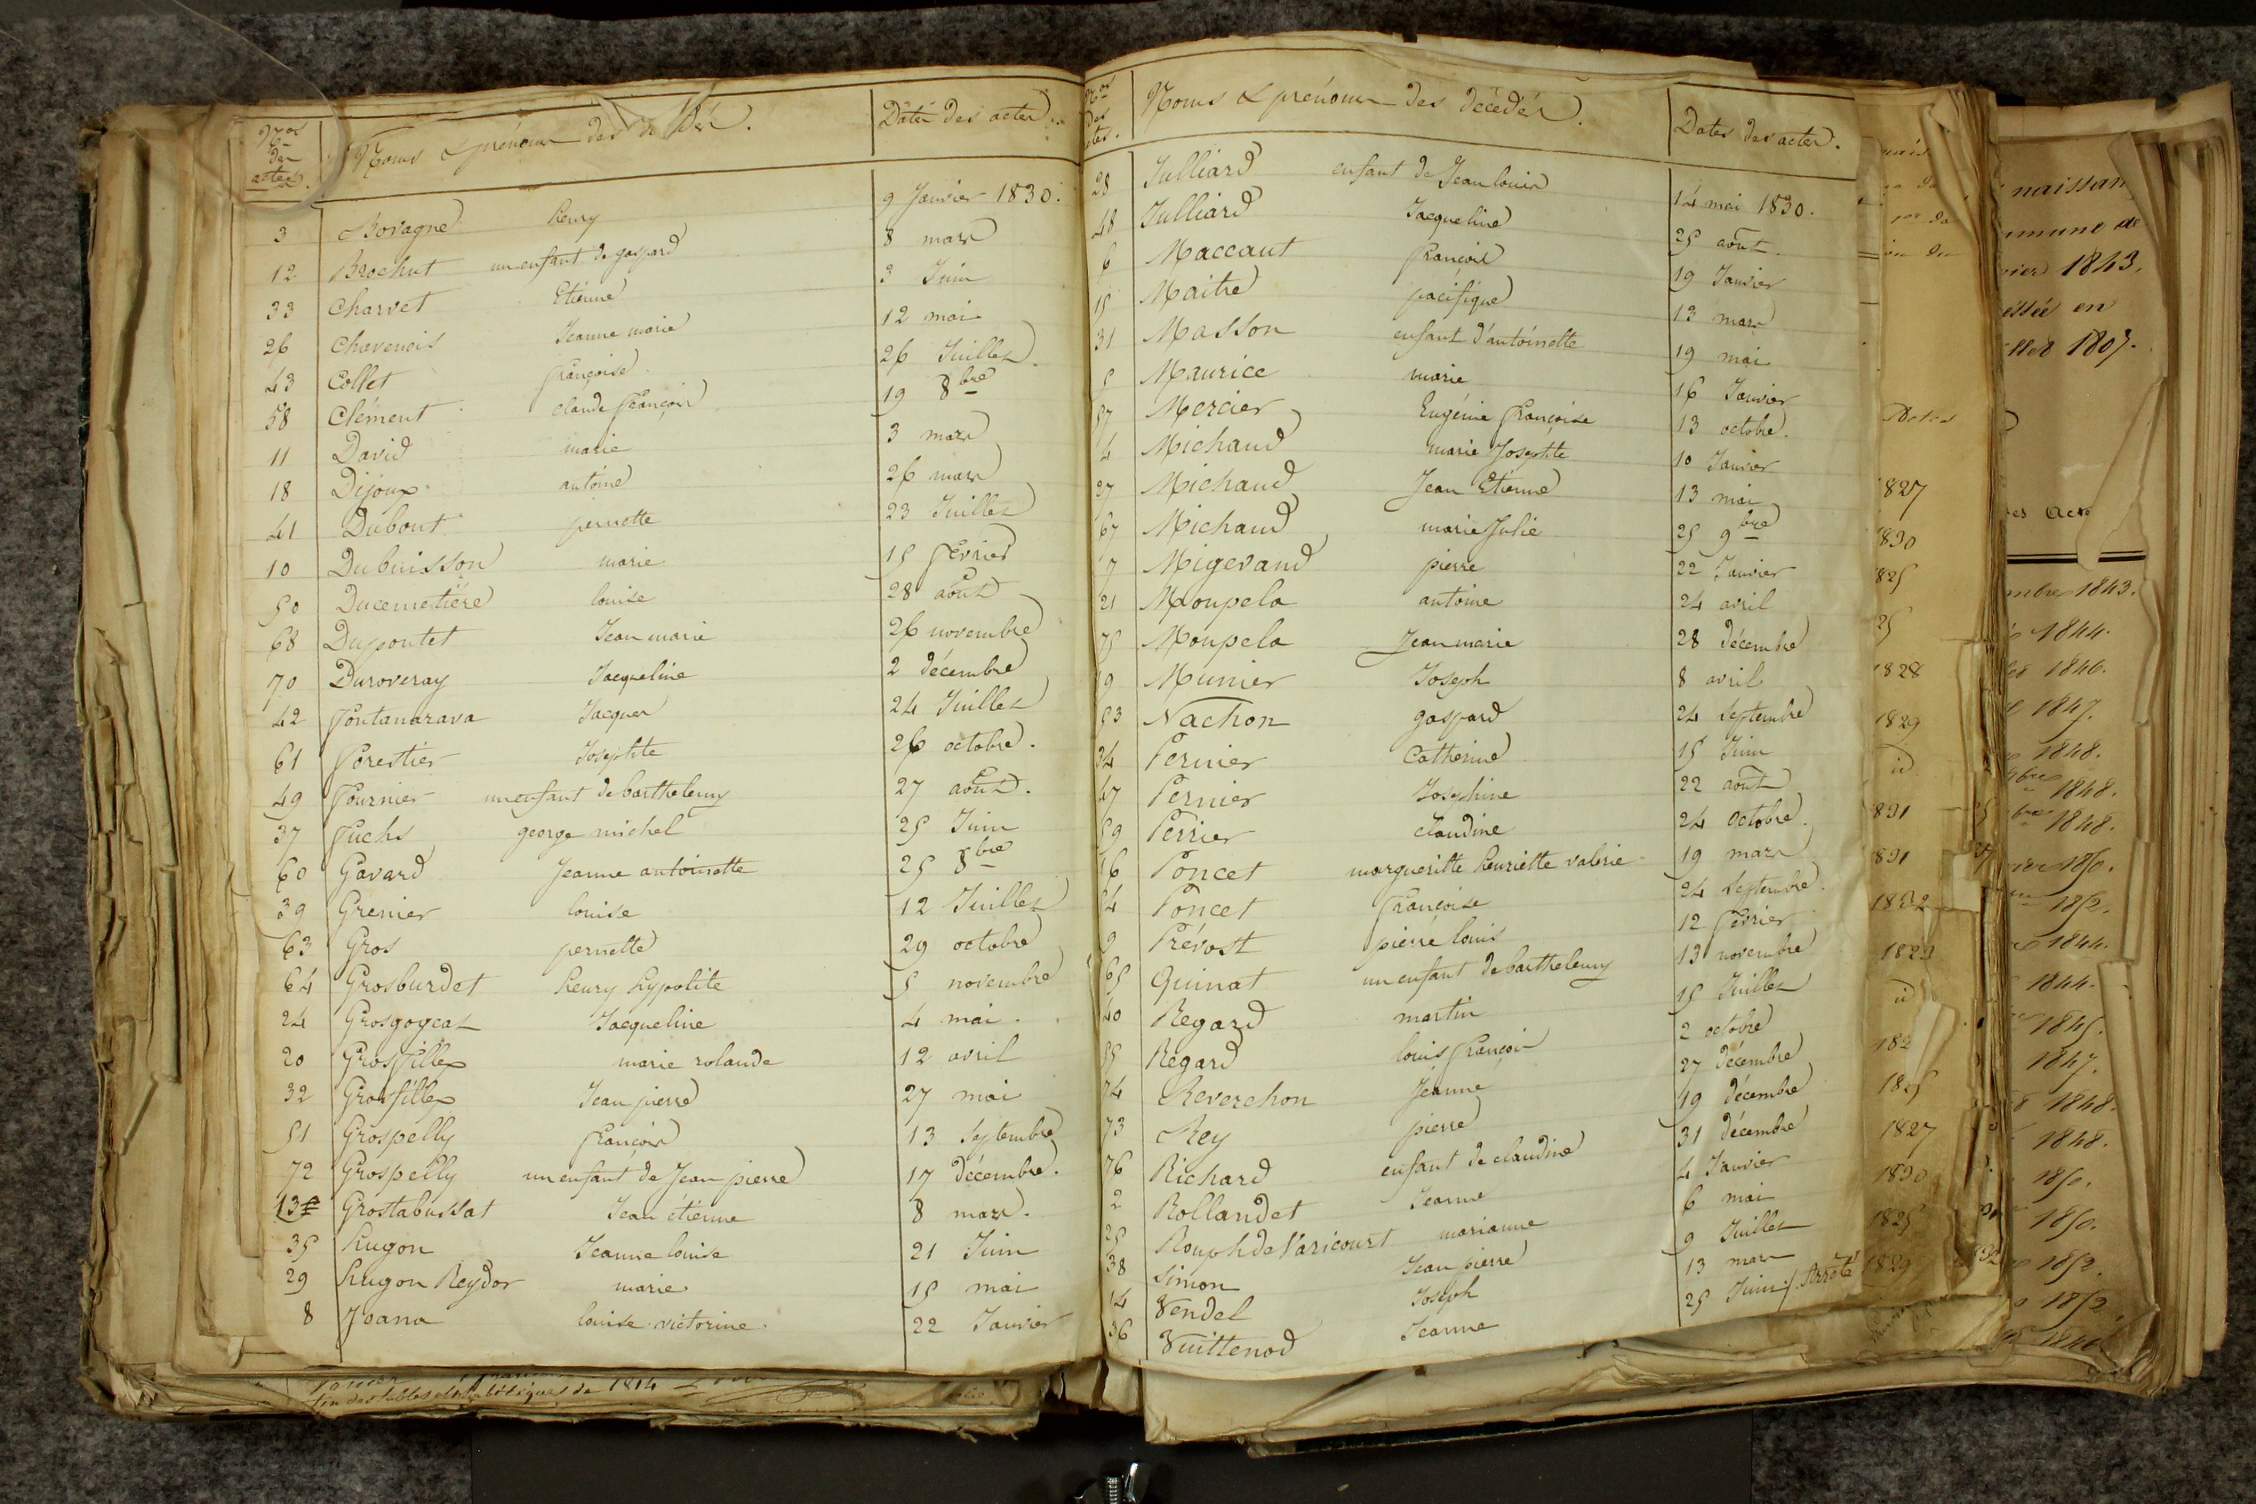 Nos des actes. Noms & prénoms des Dates des actes.
3 Bovagne henry 9 Janvier 1830.
12 Brochut un enfant de gaspard 8 mars
33 Charvet Etienne 3 Juin
26 Chavenois Jeanne marie 12 mai
43 Collet françoise 26 Juillet.
58 Clément claude françois 19 8bre
11 David marie 3 mars
18 Dijoux antoine 26 mars
41 Dubout pernette 23 Juillet
10 Dubuisson marie 15 février
50 Ducemetière louise 28 août
68 Dupontet Jean marie 26 novembre
70 Duroveray Jacqueline 2 décembre
42 Fontanarava Jacques 24 Juillet
61 Forestier Josephte 26 octobre.
49 Fournier un enfant de barthelemy 27 août.
37 Fuchs george michel 25 Juin
60 Gavard Jeanne antoinette 25 8bre
39 Grenier louise 12 Juillet
63 Gros pernette 29 octobre
64 Grosburdet henry hypolite 5 novembre
24 Grosgogeat Jacqueline 4 mai.
20 Grosfillex marie rolande 12 avril
32 Grosfillex Jean pierre 27 mai
51 Grospelly françois 13 septembre
72 Grospelly un enfant de Jean pierre 17 décembre.
13 Grostabussat Jean étienne 8 mars.
35 hugon Jeanne louise 21 Juin
29 hugon Reydor marie 15 mai
8 Joana louise victorine. 22 Janvier
fin des tables alphabétiques de 1814
Nos des actes. Noms & prénoms des décédés. Dates des actes.
28 Julliard enfant de Jean louis 14 mai 1830.
48 Julliard Jacqueline 25 août.
6 Maccaut françois 19 Janvier
15 Maitre pacifique 13 mars
31 Masson enfant d'antoinette 19 mai
5 Maurice marie 16 Janvier
57 Mercier Eugénie françoise 13 octobre.
4 Michaud marie Josephte 10 Janvier
27 Michaud Jean Etienne 13 mai
67 Michaud marie Julie 25 9bre
7 Migevand pierre 22 Janvier
21 Moupela antoine 24 avril
75 Moupela Jean marie 28 décembre
19 Munier Joseph 8 avril
53 Nachon gaspard 24 septembre
34 Pernier Catherine 15 Juin
47 Pernier Josephine 22 août
59 Perrier claudine 24 Octobre.
16 Poncet margueritte henriette valerie 19 mars
54 Poncet françoise 24 septembre.
9 Prévost pierre louis 12 février
65 Quinat un enfant de barthelemy 13 novembre
40 Regard martin 15 Juillet
55 Régard louis françois 2 octobre
74 Reverchon Jeanne 27 décembre
73 Rey pierre 19 décembre
76 Richard enfant de claudine 31 décembre
2 Rollandet Jeanne 4 Janvier
25 Rouph de Varicourt marianne 6 mai
38 Simon Jean pierre 9 Juillet
14 Vendel Joseph 13 mars
36 Vuittenod Jeanne 25 Juin / Arrêté
Dates
1827
1830
1825
25
1828
1829
id
1831
1831
1832
1829
id
182
1825
1827
1830
1825
1829
naissan
mmune de
vier 1843.
1807.
des Acte
mbre 1843.
1844.
1846.
1847.
1848.
1848.
1848.
1850.
1852.
1844.
1844.
1845.
1847.
1848.
1848.
1850.
1850.
1853.
1852